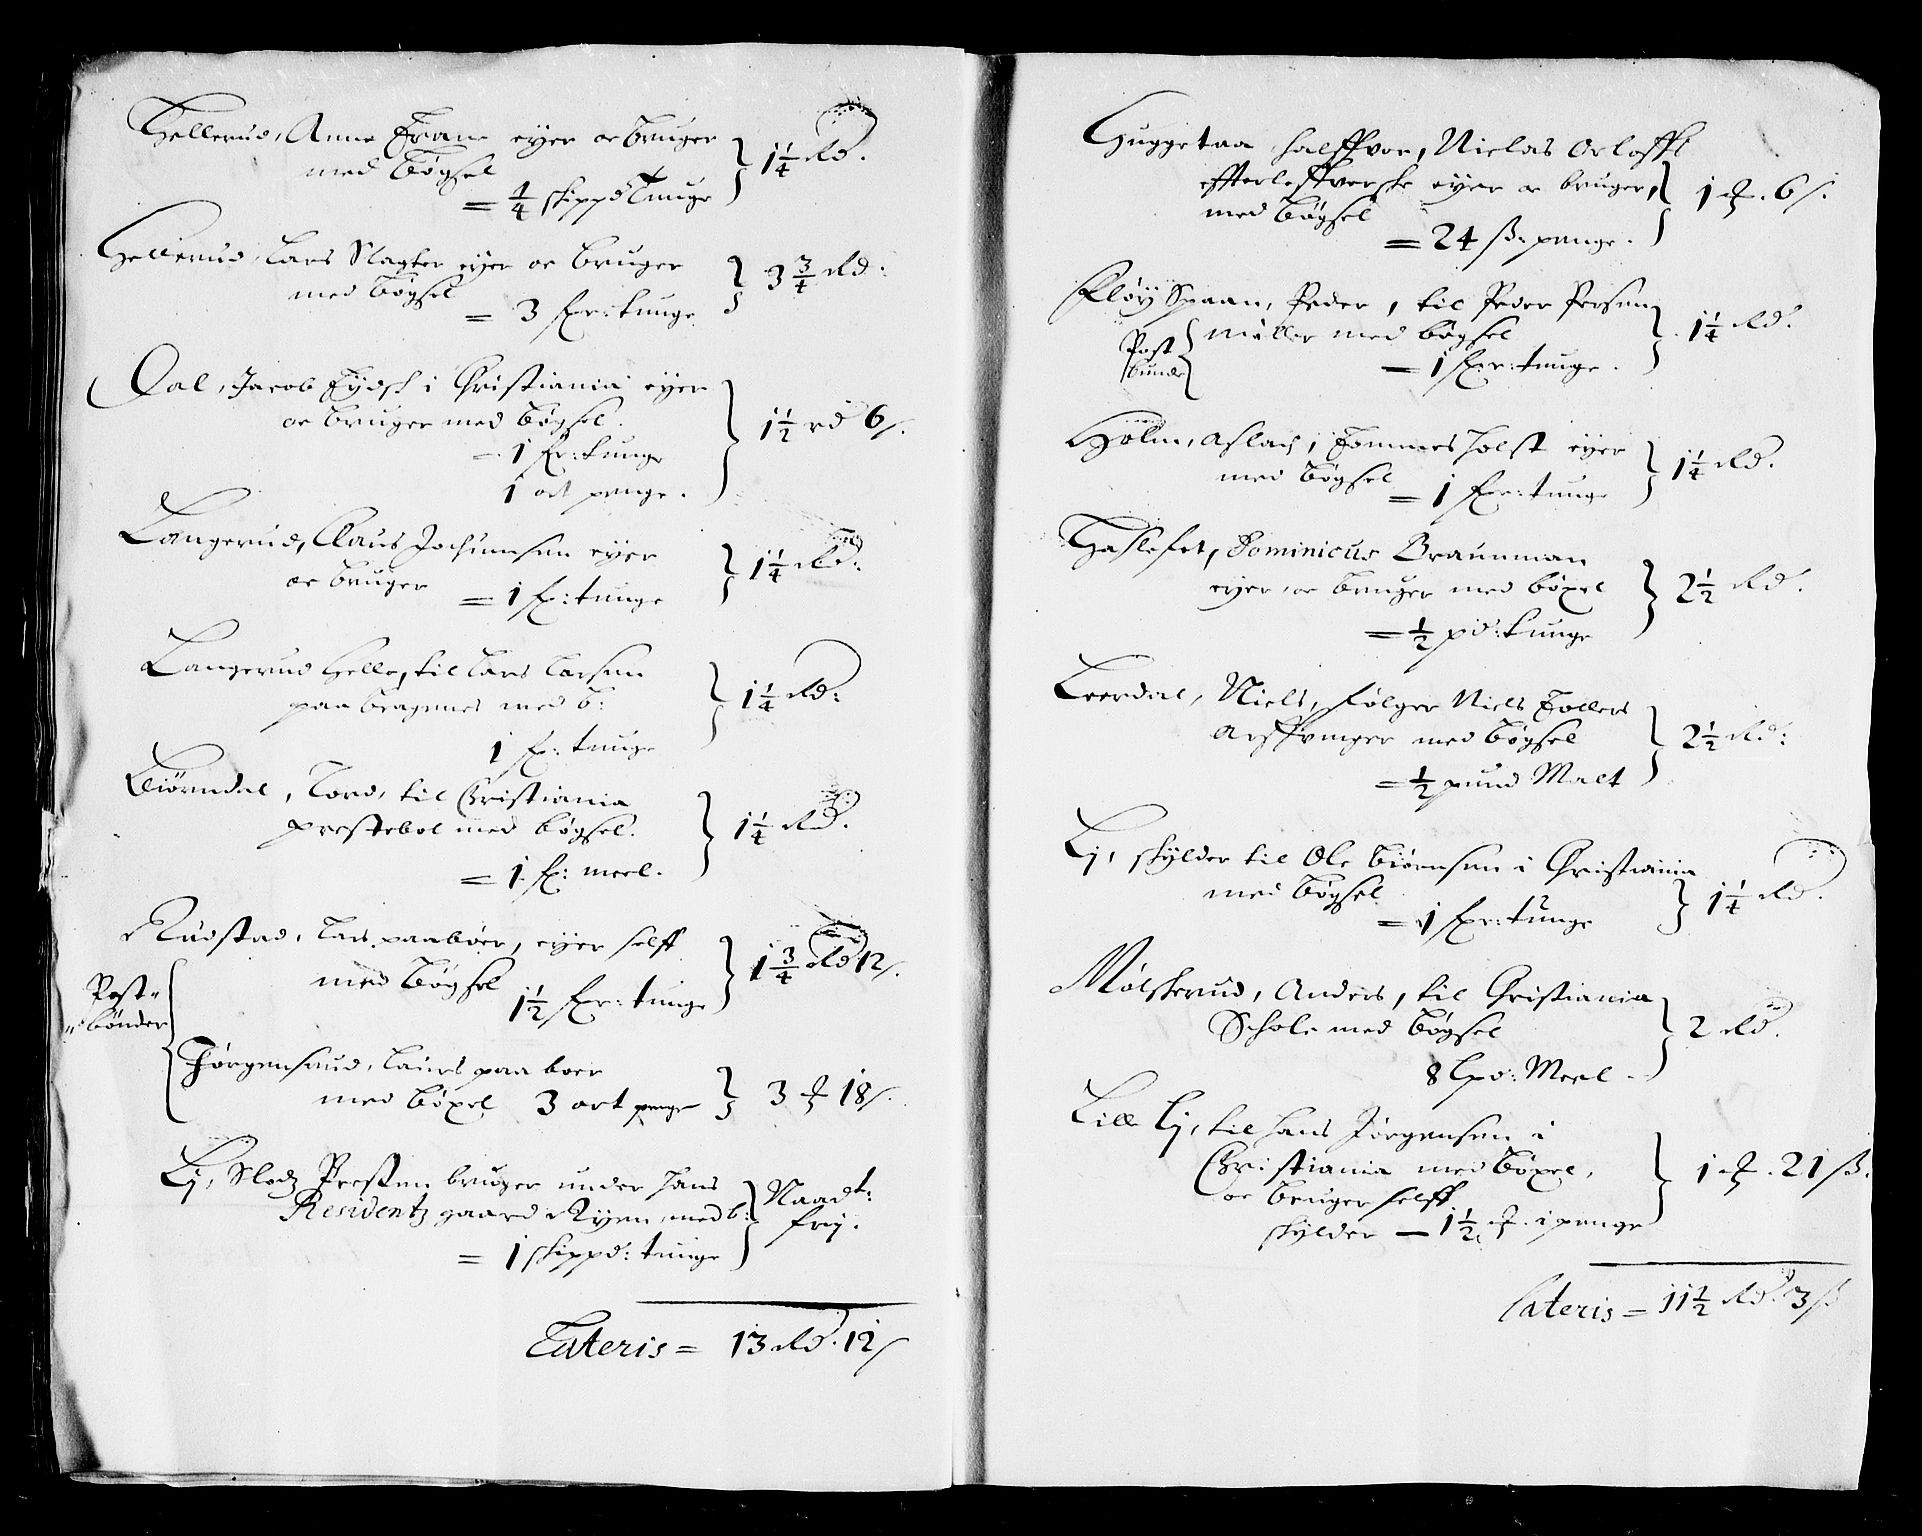 Hellerud, Anne Frans eyer oc bruger
med bøgsel
= 1/4 skippd Tunge } 1 1/4 Rd.
Hellerud, Lars Slagter eyer oc bruger
med bøgsel
= 3 fxr: tunge } 3 3/4 Rd:
Oal, Jacob i Christiania eyer
oc bruger med bøgsel.
= 1 fxr: tunge
1 ort penge. } 1 1/2 rd 6 s.
Langerud, Claus Jochumsen eyer
oc bruger = 1 fx: tunge } 1 1/4 Rd:
Langerud Helle, til Lars Larsen
paa bragenes med b:
1 fx: tunge } 1 1/4 Rd:
Biørndal, Tord, til Christiania
prestebol med bøgsel.
= 1 fx: meel. } 1 1/4 Rd.
Rudstad, Lars paaboer, eyer selff
med bøgsel
1 1/2 fxr: tunge } 1 3/4 Rd 12 s.
Post-
bönder
Jørgensrud, Laurs paaboer
med böxel 3 ort penge } 3 ort 18 s.
Lj, Slodz Presten bruger under hans
Residentz gaard Ryen, med b:
= 1 skippd: tunge } Naadt:
frij.
Lateris = 13 Rd. 12 s
Huggetaa halffvor, Niclas Orloffs
effterleffverske eyer oc bruger,
med bøgsel
= 24 ß. penge. } 1 ort. 6 s.
Fløy Spaan, Peder, til Peder Persen
Møller med bøgsel
= 1 fxr: tunge. } 1 1/4 Rd.
Post
bunde
Holm, Aslach, Tommes holst eyer
med bøgsel
= 1 fxr: tunge } 1 1/4 Rd.
Haslefet, Dominicus Braunman
eyer, oc bruger med böxel
= 1/2 pd: tunge } 2 1/2 Rd.
Leerdal, Niels, følger Niels Tollers
arffvinger med bøgsel
= 1/2 pund Malt } 2 1/2 Rd:
Lj, skylder til Ole Biørnsen i Christiania
med bøgsel
= 1 fxr: tunge } 1 1/4 Rd.
Mølskerud, Anders, til Christiania
Schole med bøgsel
8 Lpd: Meel. } 2 Rd.
Lille Lj, til hans Jörgensen i
Christiania med böxel,
oc bruger selff
skylder = 1 1/2 ort. i penge } 1 ort. 21 ß.
Lateris = 11 1/2 Rd. 3 s